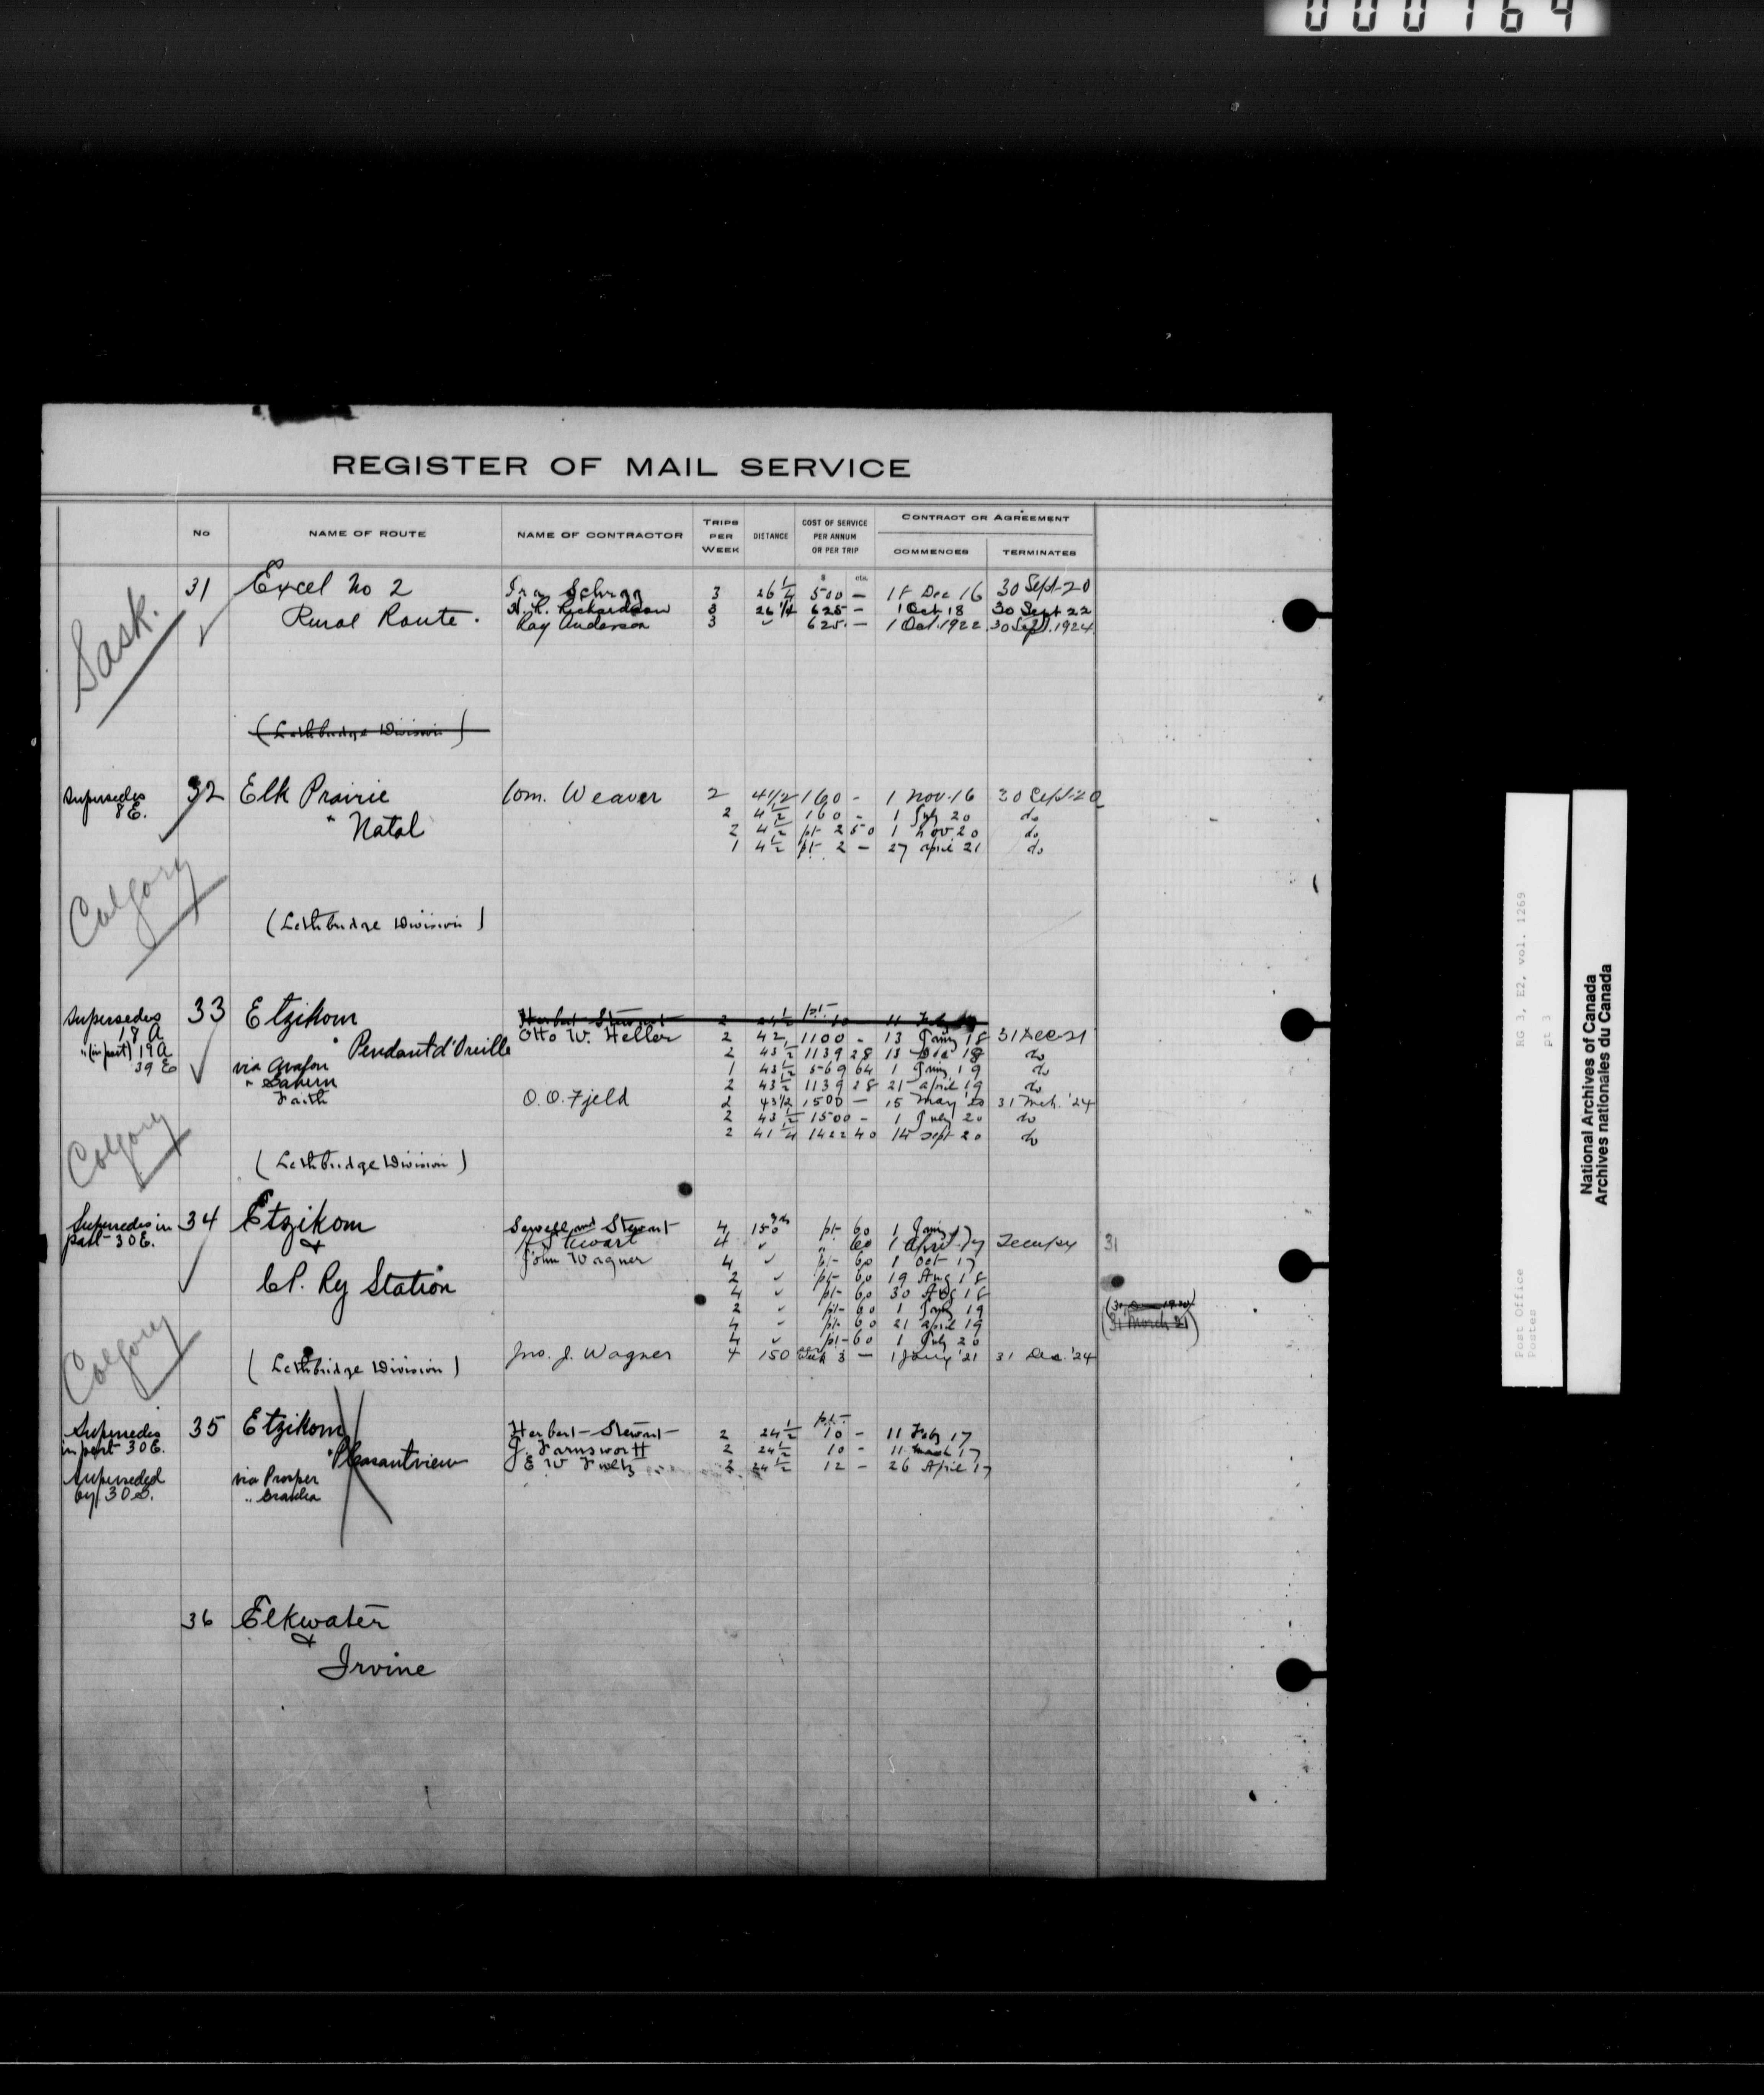 000164
REGISTER OF MAIL SERVICE
No NAME OF ROUTE NAME OF CONTRACTOR TRIPS PER WEEK DISTANCE COST OF SERVICE PER ANNUM OR PER TRIP CONTRACT OR AGREEMENT COMMENCES TERMINATES
$ cts.
Sask.
31 Excel No 2 Ira 3 26 1/4 500 — 18 Dec 16 30 Sept 20
Rural Route. H. R. Richardson 3 26 1/4 625 — 1 Oct 18 30 Sept 22
Ray Anderson 3 " 625. — 1 Oct. 1922 30 Sept. 1924
(Lethbridge Division)
Supersedes 8 E.
32 Elk Prairie Wm. Weaver 2 4 1/2 160 - 1 Nov. 16 30 Sept 20
" Natal 2 4 1/2 160 - 1 July 20 do
2 4 1/2 pt 2 50 1 Nov 20 do
1 4 1/2 pt. 2 — 27 April 21 do
Calgary
(Lethbridge Division)
Supersedes 18 A
" (in part) 19A
39 E
33 Etzikom Herbert Stewart 2 24 1/2 pt 10 11 Feby
" Pendant d'Oreille Otto W. Heller 2 42 1100 - 13 Jany 18 31 Dec 21
via Avalon 2 43 1/2 1139 28 13 Dec 18 do
1 43 1/2 569 64 1 Jany 19 do
Faith 2 43 1/2 1139 28 21 April 19 do
O. O. Fjeld 2 43 1/2 1500 — 15 May '20 31 Mch. '24
2 43 1/2 1500 - 1 July 20 do
2 41 1/4 1422 40 15 Sept 20 do
Calgary
(Lethbridge Division)
Supersedes in part 30 E.
34 Etzikom Sewell and Stewart 4 150 yds pt 60 1 Jany 17
& Stewart 4 " " 60 1 April 17 31
C P. Ry Station John Wagner 4 " pt 60 1 Oct 17
2 " pt 60 19 Aug 18
4 " pt 60 30 Aug 18
2 " pt 60 1 Jany 19
4 " pt 60 21 April 19
(31 March 21)
4 " pt 60 1 July 20
Calgary
(Lethbridge Division) Jno. J. Wagner 4 150 Week 3 — 1 Jany '21 31 Dec. '24
Supersedes in part 30 E.
Superseded by 30 S.
35 Etzikom Herbert Stewart 2 24 1/2 pt 10 - 11 Feby 17
" Pleasantview J. Farnsworth 2 24 1/2 10 - 11 March 17
via Prosper E W Foltz 2 24 1/2 12 - 26 April 17
36 Elkwater
&
Irvine
RG 3, E2, vol. 1269
pt 3
Post Office
Postes
National Archives of Canada
Archives nationales du Canada